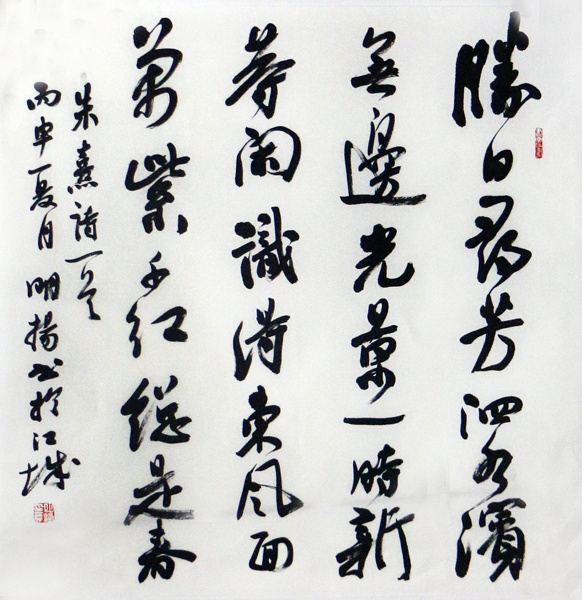 勝日尋芳泗水濱
無邊光景一時新
等閑識得東風面
萬紫千紅總是春
朱熹詩一首
丙申夏月明揚書於江城